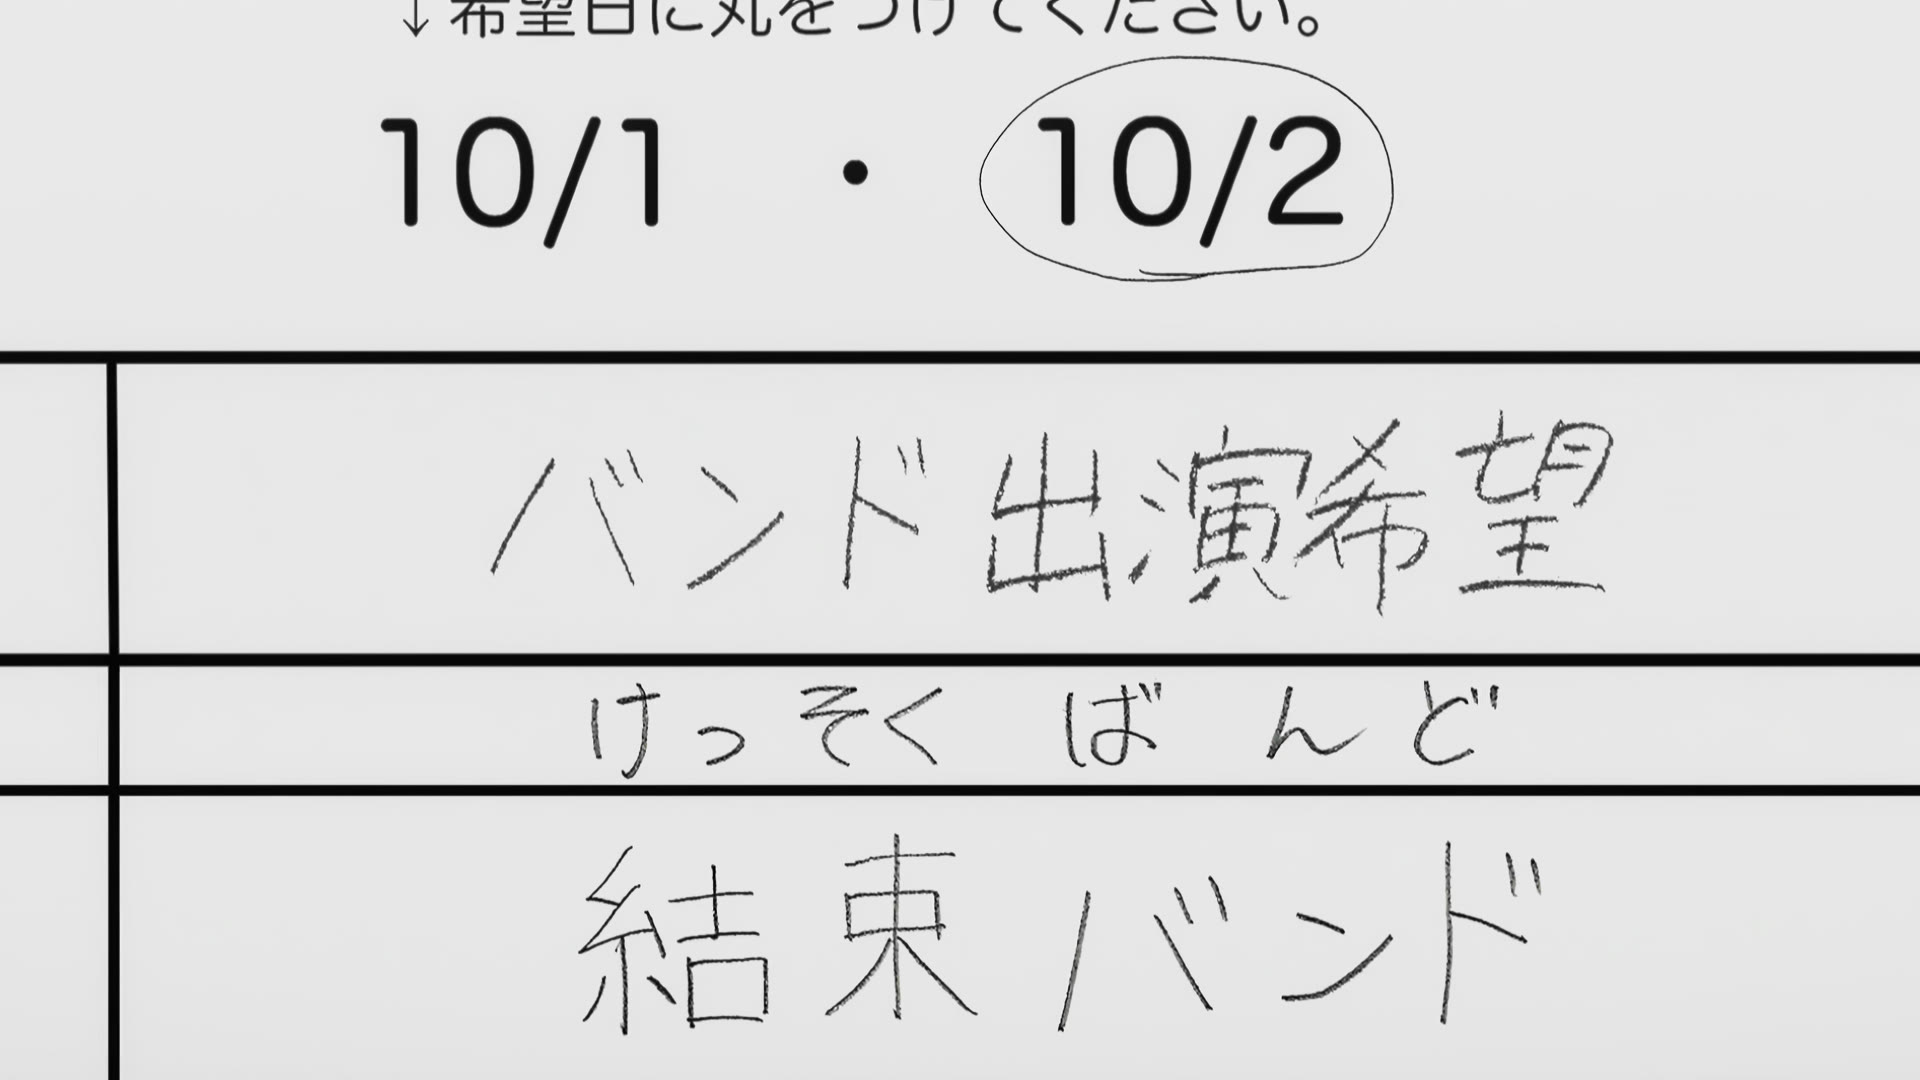 ↓希望日に丸をつけてください。
10/1 ・ 10/2
バンド出演希望
けっそく ばんど
結束バンド